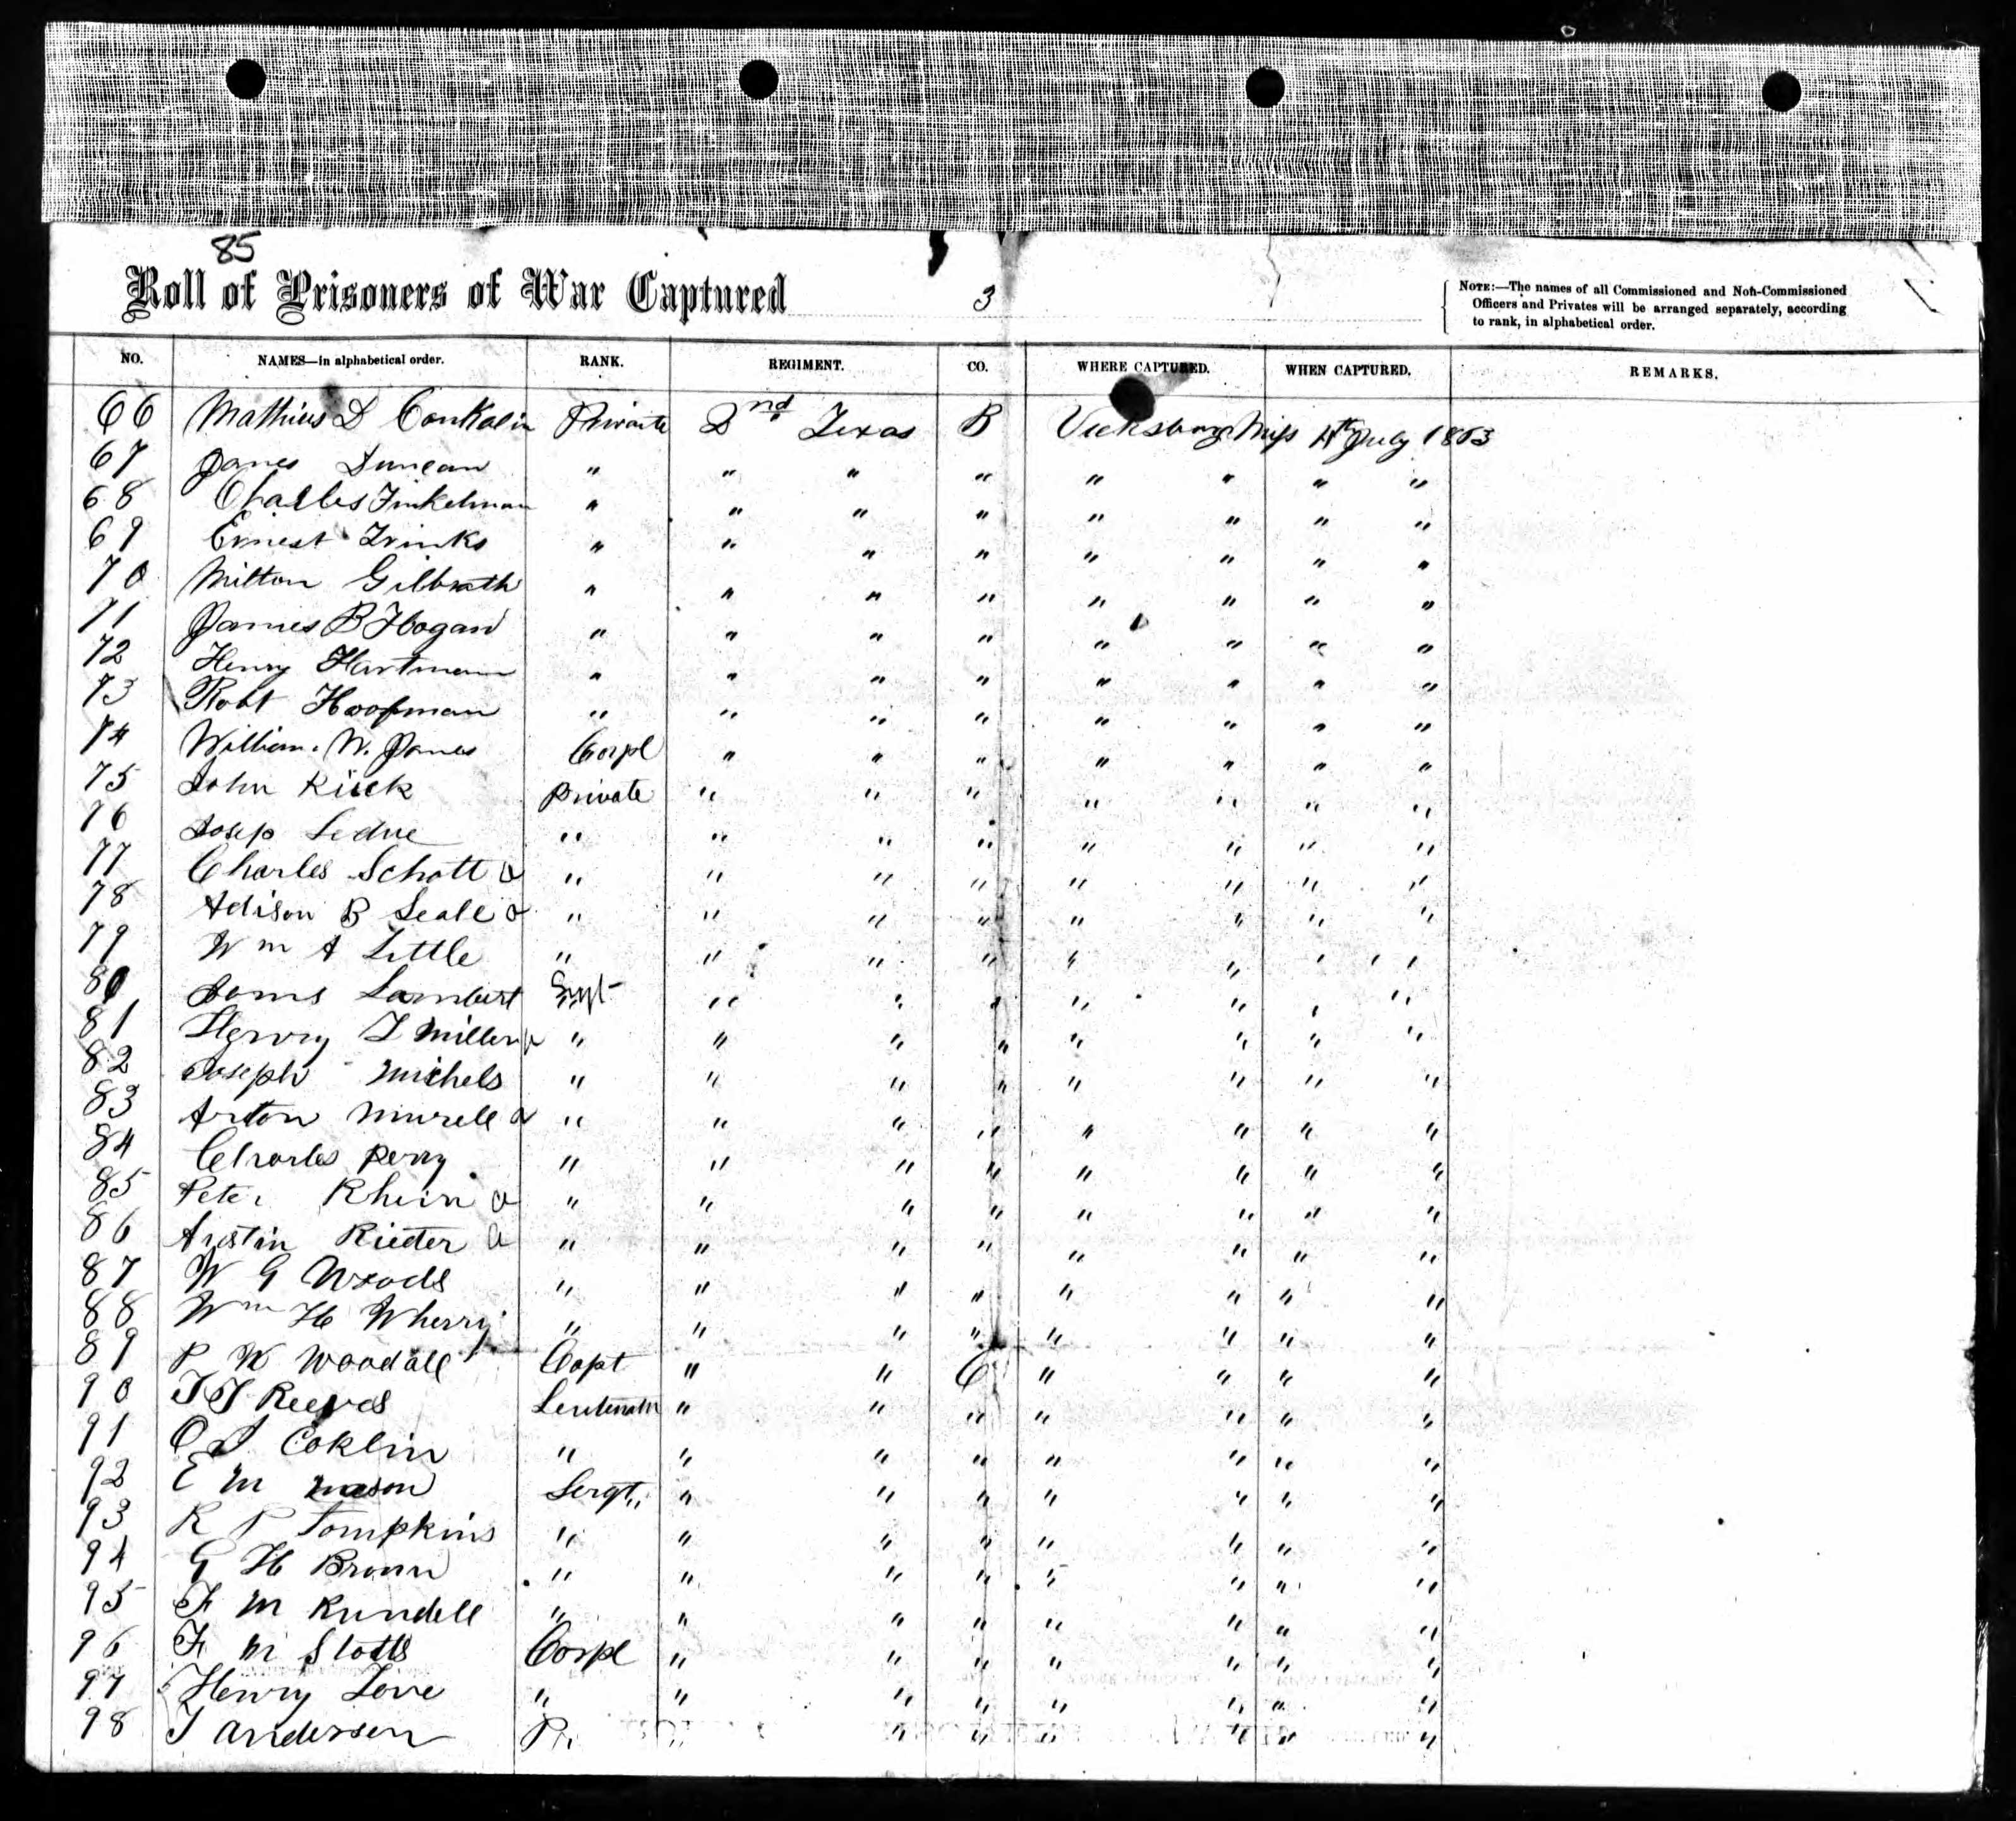 85
Roll of Prisoners of War Captured 3
NOTE:—The names of all Commissioned and Non-Commissioned
Officers and Privates will be arranged separately, according
to rank, in alphabetical order.
NO. NAMES—in alphabetical order. RANK. REGIMENT. CO. WHERE CAPTURED. WHEN CAPTURED. REMARKS.
66 Mathius D Conkalin Private 2nd Texas B Vicksburg Miss 4th July 1863
67 James Duncan " " " " " " " "
68 Charles Finkelman " " " " " " " "
69 Ernest Frinks " " " " " " " "
70 Milton Gilbrath " " " " " " " "
71 James B Hogan " " " " " " " "
72 Henry Hartman " " " " " " " "
73 Robt Hoofman " " " " " " " "
74 William. W. James Corpl " " " " " " "
75 John Kuck Private " " " " " " "
76 Josep Ledue " " " " " " " "
77 Charles Schott a " " " " " " " "
78 Adison B Seale a " " " " " " " "
79 Wm A Little " " " " " " " "
80 James Lambert Sergt " " " " " " "
81 Henry L Miller a " " " " " " " "
82 Joseph Michels " " " " " " " "
83 Arton Murell a " " " " " " " "
84 Charles Perry " " " " " " " "
85 Peter Rhein a " " " " " " " "
86 Austin Rieter a " " " " " " " "
87 W G Woods " " " " " " " "
88 Wm H Wherry " " " " " " " "
89 P W Woodall Capt " " C " " " "
90 T J Reeves Leutenatn " " " " " " "
91 O J Coklin " " " " " " " "
92 E M Mason Sergt " " " " " " "
93 R P Tompkins " " " " " " " "
94 G H Brown " " " " " " " "
95 F M Rundell " " " " " " " "
96 F M Slotts Corpl " " " " " " "
97 Henry Love " " " " " " " "
98 J Anderson Pr. " " " " " "